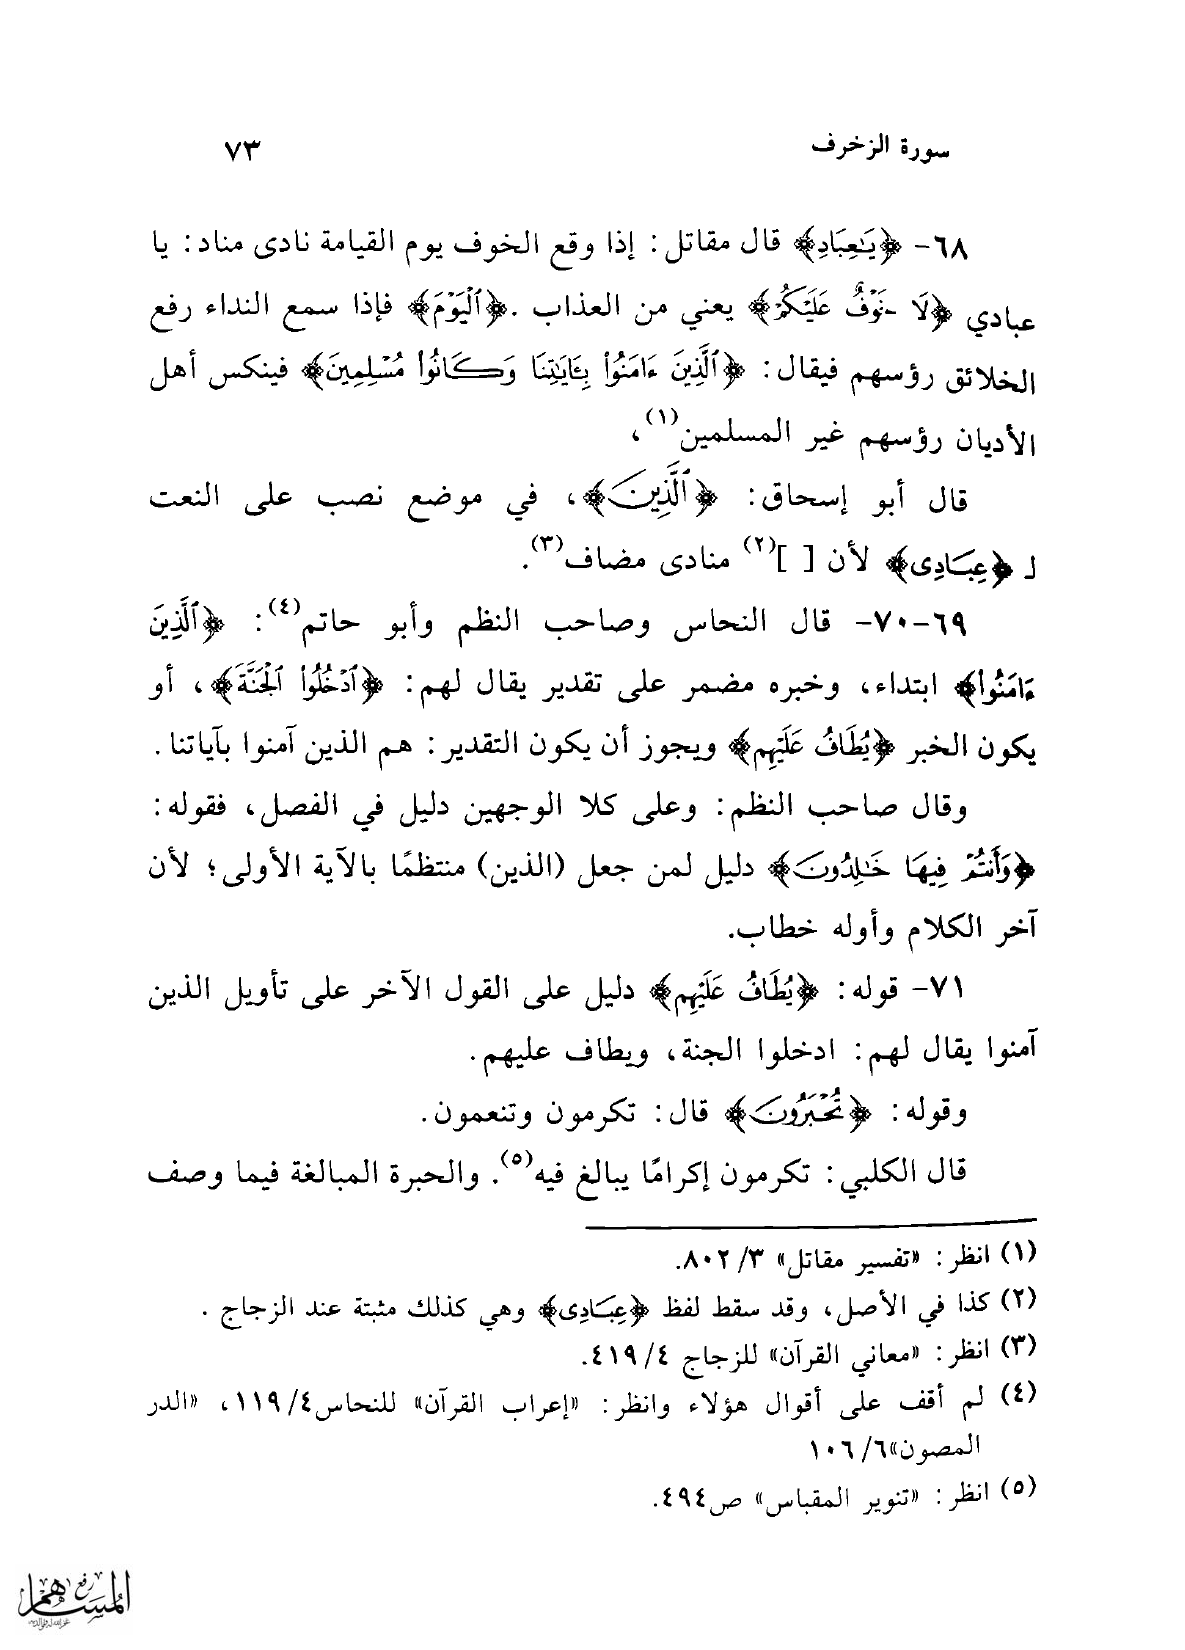 سورة الزخرف ٧٣
٦٨- ﴿يَٰعِبَادِ﴾ قال مقاتل: إذا وقع الخوف يوم القيامة نادى مناد: يا
عبادي ﴿لَا خَوْفٌ عَلَيْكُمُ﴾ يعني من العذاب. ﴿ٱلْيَوْمَ﴾ فإذا سمع النداء رفع
الخلائق رؤسهم فيقال: ﴿ٱلَّذِينَ ءَامَنُوا۟ بِـَٔايَٰتِنَا وَكَانُوا۟ مُسْلِمِينَ﴾ فينكس أهل
الأديان رؤسهم غير المسلمين(١)،
قال أبو إسحاق: ﴿ٱلَّذِينَ﴾، في موضع نصب على النعت
لـ ﴿عِبَادِى﴾ لأن [ ](٢) منادى مضاف(٣).
٦٩-٧٠- قال النحاس وصاحب النظم وأبو حاتم(٤): ﴿ٱلَّذِينَ
ءَامَنُوا۟﴾ ابتداء، وخبره مضمر على تقدير يقال لهم: ﴿ٱدْخُلُوا۟ ٱلْجَنَّةَ﴾، أو
يكون الخبر ﴿يُطَافُ عَلَيْهِم﴾ ويجوز أن يكون التقدير: هم الذين آمنوا بآياتنا.
وقال صاحب النظم: وعلى كلا الوجهين دليل في الفصل، فقوله:
﴿وَأَنتُمْ فِيهَا خَٰلِدُونَ﴾ دليل لمن جعل (الذين) منتظمًا بالآية الأولى؛ لأن
آخر الكلام وأوله خطاب.
٧١- قوله: ﴿يُطَافُ عَلَيْهِم﴾ دليل على القول الآخر على تأويل الذين
آمنوا يقال لهم: ادخلوا الجنة، ويطاف عليهم.
وقوله: ﴿تُحْبَرُونَ﴾ قال: تكرمون وتنعمون.
قال الكلبي: تكرمون إكرامًا يبالغ فيه(٥). والحبرة المبالغة فيما وصف
(١) انظر: «تفسير مقاتل» ٣/ ٨٠٢.
(٢) كذا في الأصل، وقد سقط لفظ ﴿عِبَادِى﴾ وهي كذلك مثبتة عند الزجاج.
(٣) انظر: «معاني القرآن» للزجاج ٤/ ٤١٩.
(٤) لم أقف على أقوال هؤلاء وانظر: «إعراب القرآن» للنحاس٤/ ١١٩، «الدر
المصون»٦/ ١٠٦
(٥) انظر: «تنوير المقباس» ص٤٩٤.
رفع
المساهم